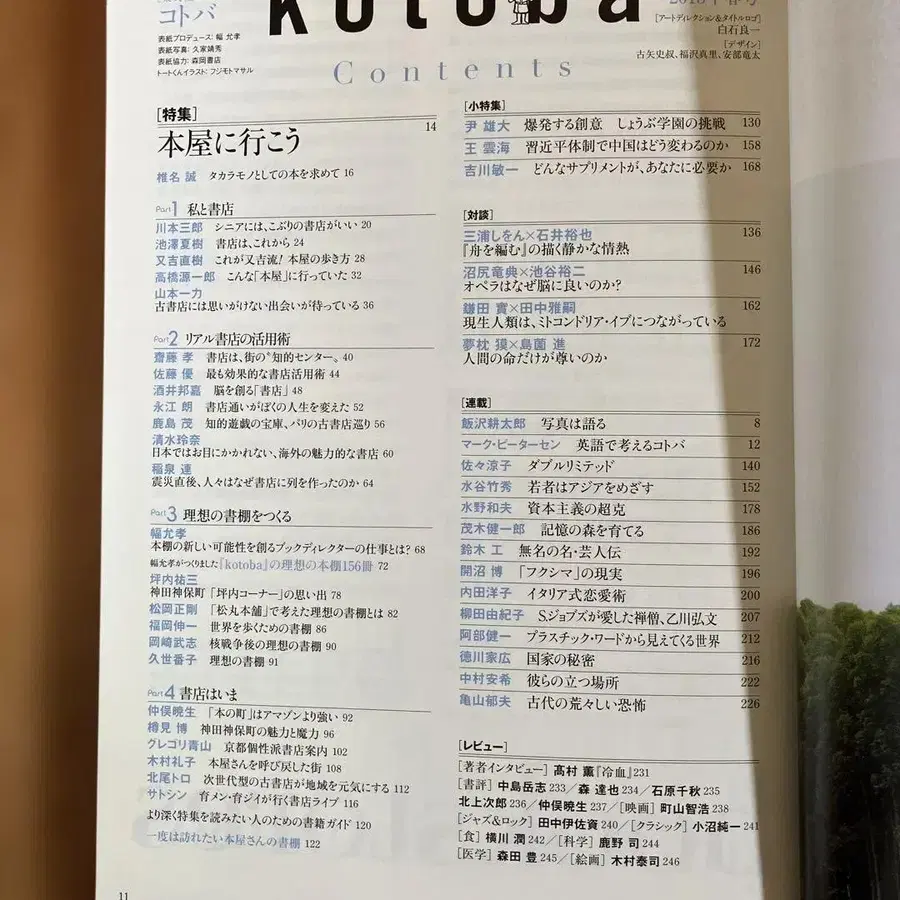 kotoba
コトバ
表紙プロデュース：幅 允孝
表紙写真：久家靖秀
表紙協力：森岡書店
トートくんイラスト：フジモトマサル
[アートディレクション&タイトルロゴ]
白石良一
[デザイン]
古矢史叔、福沢真里、安部竜太
Contents
[特集]
本屋に行こう 14
椎名 誠 タカラモノとしての本を求めて 16
Part1 私と書店
川本三郎 シニアには、こぶりの書店がいい 20
池澤夏樹 書店は、これから 24
又吉直樹 これが又吉流！ 本屋の歩き方 28
高橋源一郎 こんな「本屋」に行っていた 32
山本一力
古書店には思いがけない出会いが待っている 36
Part2 リアル書店の活用術
齋藤 孝 書店は、街の〝知的センター〟 40
佐藤 優 最も効果的な書店活用術 44
酒井邦嘉 脳を創る「書店」 48
永江 朗 書店通いがぼくの人生を変えた 52
鹿島 茂 知的遊戯の宝庫、パリの古書店巡り 56
清水玲奈
日本ではお目にかかれない、海外の魅力的な書店 60
稲泉 連
震災直後、人々はなぜ書店に列を作ったのか 64
Part3 理想の書棚をつくる
幅允孝
本棚の新しい可能性を創るブックディレクターの仕事とは？ 68
幅允孝がつくりました『kotoba』の理想の本棚156冊 72
坪内祐三
神田神保町「坪内コーナー」の思い出 78
松岡正剛 「松丸本舗」で考えた理想の書棚とは 82
福岡伸一 世界を歩くための書棚 86
岡崎武志 核戦争後の理想の書棚 90
久世番子 理想の書棚 91
Part4 書店はいま
仲俣暁生 「本の町」はアマゾンより強い 92
樽見 博 神田神保町の魅力と魔力 96
グレゴリ青山 京都個性派書店案内 102
木村礼子 本屋さんを呼び戻した街 108
北尾トロ 次世代型の古書店が地域を元気にする 112
サトシン 育メン・育ジイが行く書店ライブ 116
より深く特集を読みたい人のための書籍ガイド 120
一度は訪れたい本屋さんの書棚 122
[小特集]
尹 雄大 爆発する創意 しょうぶ学園の挑戦 130
王 雲海 習近平体制で中国はどう変わるのか 158
吉川敏一 どんなサプリメントが、あなたに必要か 168
[対談]
三浦しをん×石井裕也 136
『舟を編む』の描く静かな情熱
沼尻竜典×池谷裕二 146
オペラはなぜ脳に良いのか？
鎌田 實×田中雅嗣 162
現生人類は、ミトコンドリア・イブにつながっている
夢枕 獏×島薗 進 172
人間の命だけが尊いのか
[連載]
飯沢耕太郎 写真は語る 8
マーク・ピーターセン 英語で考えるコトバ 12
佐々涼子 ダブルリミテッド 140
水谷竹秀 若者はアジアをめざす 152
水野和夫 資本主義の超克 178
茂木健一郎 記憶の森を育てる 186
鈴木 工 無名の名・芸人伝 192
開沼 博 「フクシマ」の現実 196
内田洋子 イタリア式恋愛術 200
柳田由紀子 S.ジョブズが愛した禅僧、乙川弘文 207
阿部健一 プラスチック・ワードから見えてくる世界 212
徳川家広 国家の秘密 216
中村安希 彼らの立つ場所 222
亀山郁夫 古代の荒々しい恐怖 226
[レビュー]
[著者インタビュー] 髙村 薫『冷血』231
[書評] 中島岳志 233／森 達也 234／石原千秋 235
北上次郎 236／仲俣暁生 237／[映画] 町山智浩 238
[ジャズ&ロック] 田中伊佐資 240／[クラシック] 小沼純一 241
[食] 横川 潤 242／[科学] 鹿野 司 244
[医学] 森田 豊 245／[絵画] 木村泰司 246
11